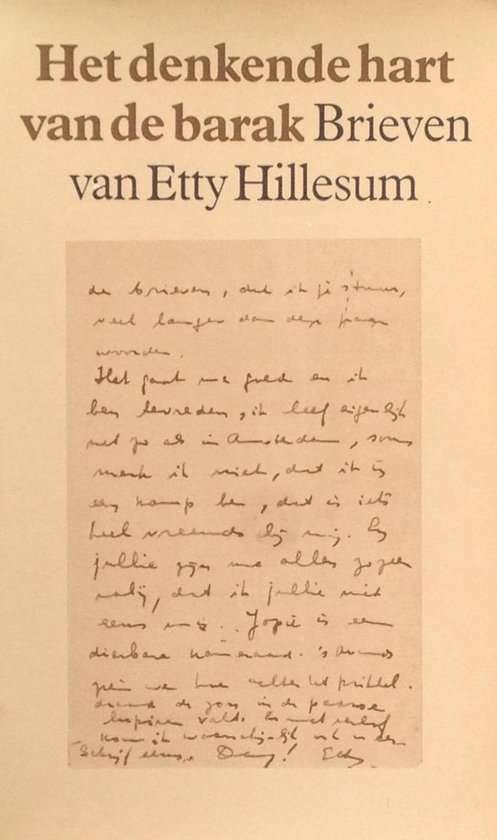 Het denkende hart
van de barak Brieven
van Etty Hillesum
de brieven, dat ik je stuur,
veel langer dan deze paar
woorden.
Het gaat me goed en ik
ben tevreden, ik leef eigenlijk
net zo als in Amsterdam, soms
merk ik niet, dat ik in
een kamp ben, dat is iets
heel vreemds bij mij. En
jullie zijn me allen zo zeer
nabij, dat ik jullie niet
eens mis. Jopie is een
dierbare kameraad. 's Avonds
zien we hoe achter het prikkel-
draad de zon in de paarse
lupinen valt. En met verlof
kom ik waarschijnlijk ook
Schrijf eens. Dag! Etty